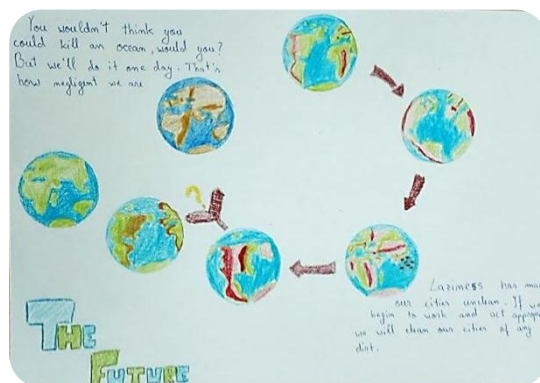 You wouldn't think you
could kill an ocean, would you?
But we'll do it one day. That's
how negligent we are
?
Laziness has
our cities unclean. If
begin to work and act
we will clean our cities of any
dirt.
THE
FUTURE